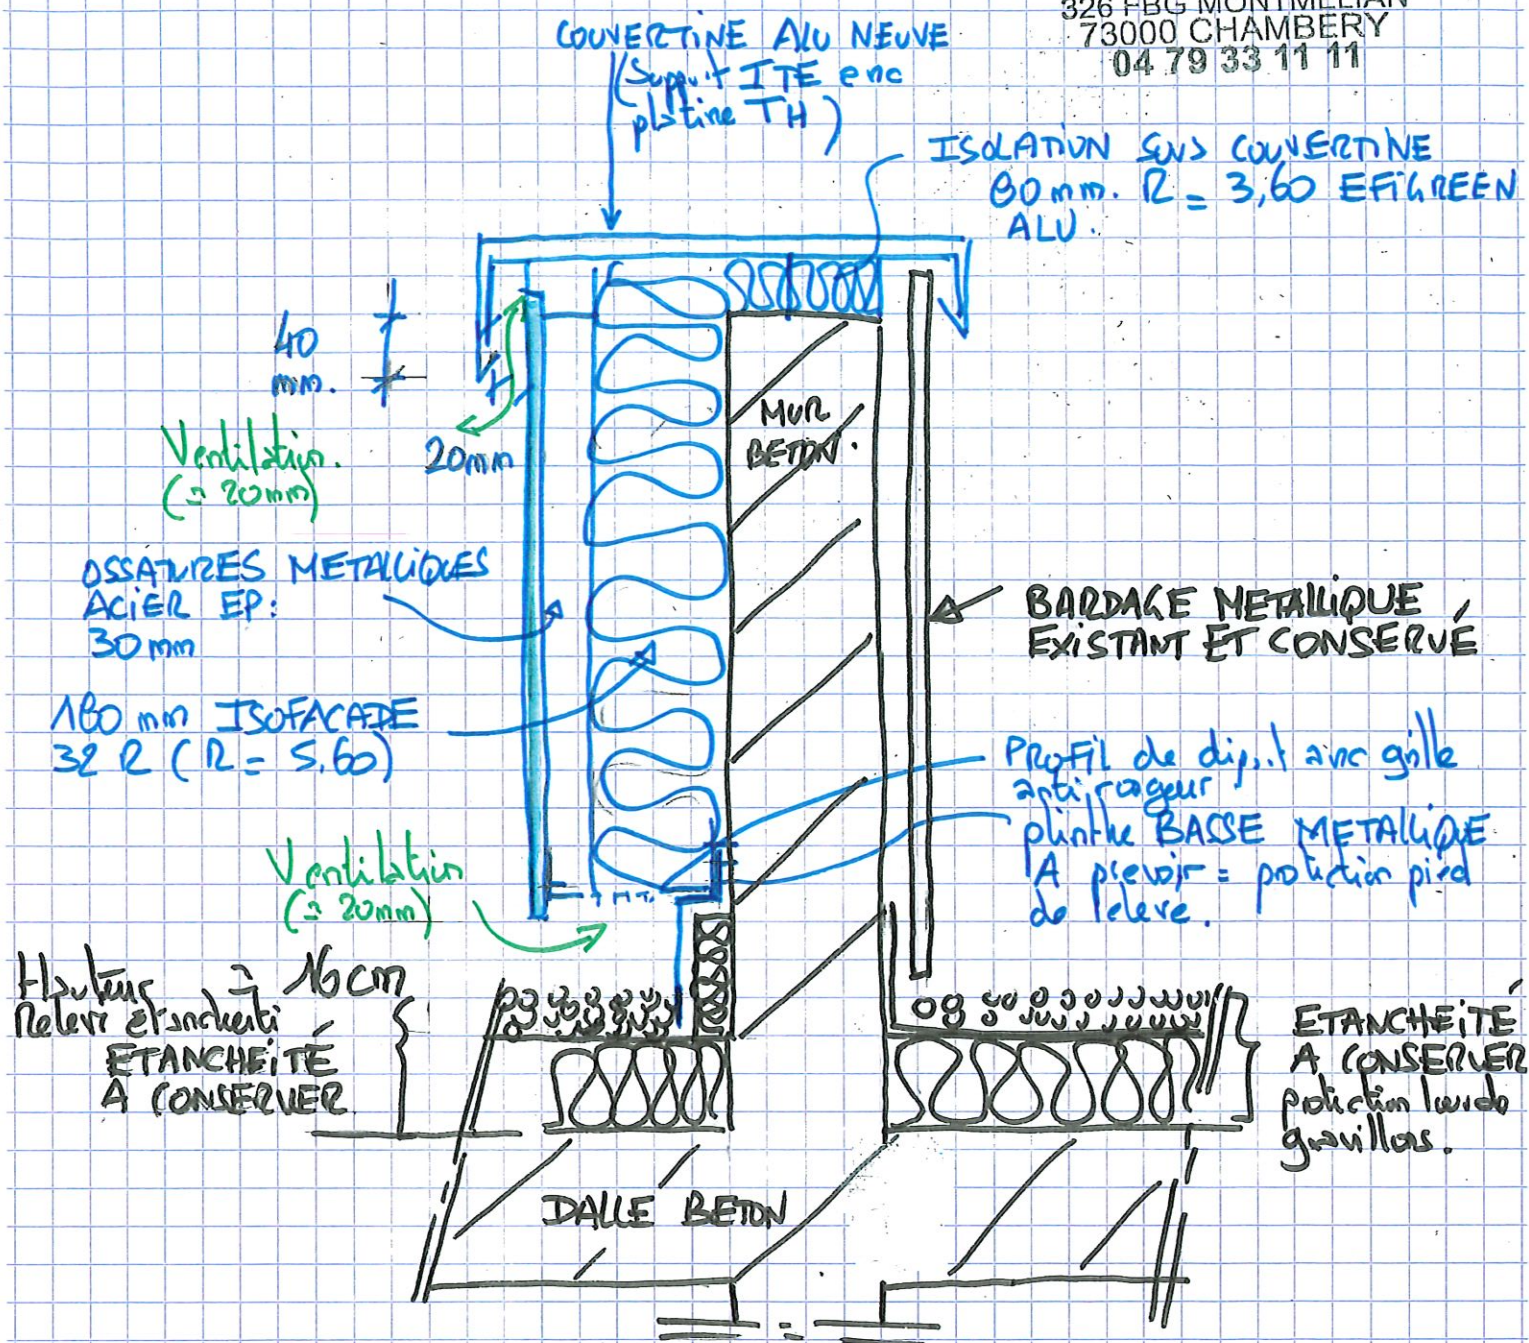 326 FBG MONTMELIAN
73000 CHAMBERY
04 79 33 11 11
COUVERTINE ALU NEUVE
(Support ITE enc
platine TH)
ISOLATION SOUS COUVERTINE
80 mm. R = 3,60 EFIGREEN
ALU.
40
mm.
Ventilation.
(= 20mm)
20mm
MUR
BETON.
OSSATURES METALLIQUES
ACIER EP:
30mm
BARDAGE METALLIQUE
EXISTANT ET CONSERVÉ
180 mm ISOFACADE
32 R (R = 5.60)
PROFIL de avec grille
anti rongeur
plinthe BASSE METALLIQUE
A prevoir = protection pied
de releve.
Ventilation
(= 20mm)
Hauteur = 16cm
Releve
ETANCHEITÉ
A CONSERVER
ETANCHEITÉ
A CONSERVER
protection lourde
gravillons.
DALLE BETON